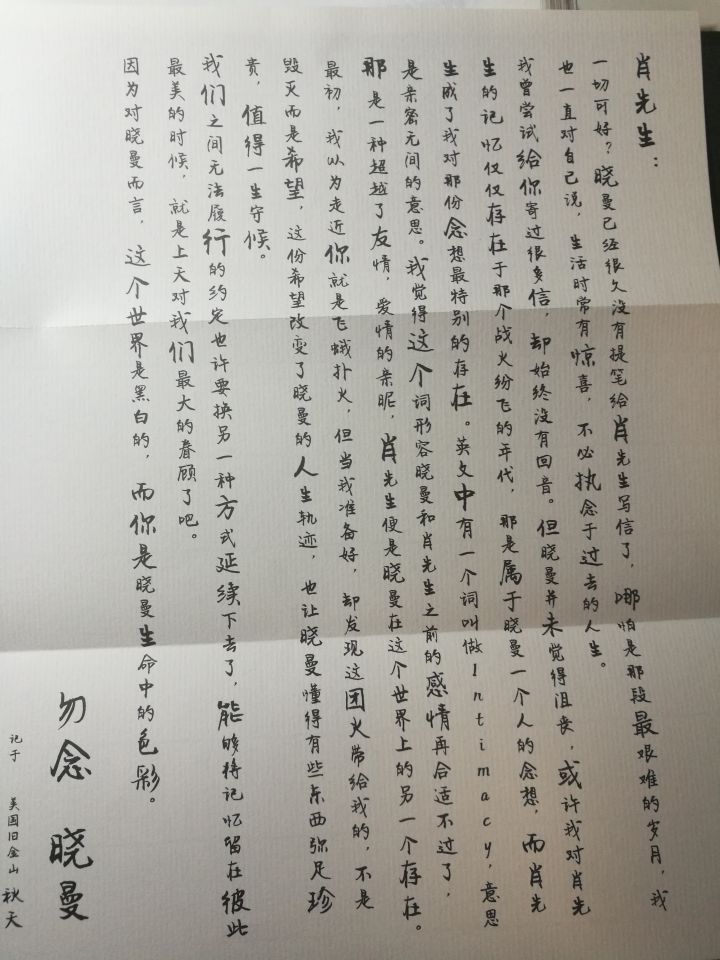 肖先生：
一切可好？晓曼已经很久没有提笔给肖先生写信了，哪怕是那段最艰难的岁月，我
也一直对自己说，生活时常有惊喜，不必执念于过去的人生。
我曾尝试给你寄过很多信，却始终没有回音。但晓曼并未觉得沮丧，或许我对肖先
生的记忆仅仅存在于那个战火纷飞的年代，那是属于晓曼一个人的念想，而肖先
生成了我对那份念想最特别的存在。英文中有一个词叫做Intimacy，意思
是亲密无间的意思。我觉得这个词形容晓曼和肖先生之前的感情再合适不过了，
那是一种超越了友情，爱情的亲昵，肖先生便是晓曼在这个世界上的另一个存在。
最初，我以为走近你就是飞蛾扑火，但当我准备好，却发现这团火带给我的，不是
毁灭而是希望，这份希望改变了晓曼的人生轨迹，也让晓曼懂得有些东西弥足珍
贵，值得一生守候。
我们之间无法履行的约定也许要换另一种方式延续下去了，能够将记忆留在彼此
最美的时候，就是上天对我们最大的眷顾了吧。
因为对晓曼而言，这个世界是黑白的，而你是晓曼生命中的色彩。
勿念 晓曼
记于 美国旧金山 秋天